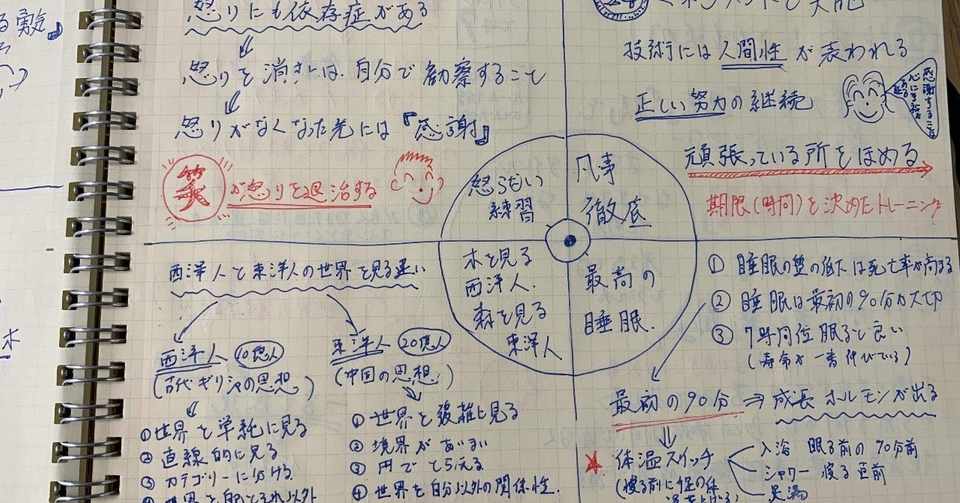 怒りにも依存症がある
怒りを消すには、自分で観察すること
怒りがなくなった先には『感謝』
笑が怒りを退治する
技術には人間性が表われる
正しい努力の継続
頑張っている所をほめる
期限(時間)を決めたトレーニング
怒らない
練習
凡事
徹底
木を見る
西洋人.
森を見る
東洋人
最高の
睡眠.
西洋人と東洋人の世界を見る違い
西洋人 10億人
(古代ギリシャの思想)
①世界を単純に見る
②直線的に見る
③カテゴリーに分ける
東洋人 20億人
(中国の思想)
①世界を複雑に見る
②境界があいまい
③円でとらえる
④世界を自分以外の関係性.
① 睡眠の質の低下は死亡率が高まる
② 睡眠は最初の90分が大切
③ 7時間位眠ると良い
(寿命が一番伸びている)
最初の90分 ⇒ 成長ホルモンが出る
体温スイッチ
入浴 眠る前の90分前
シャワー 寝る直前
足湯
木